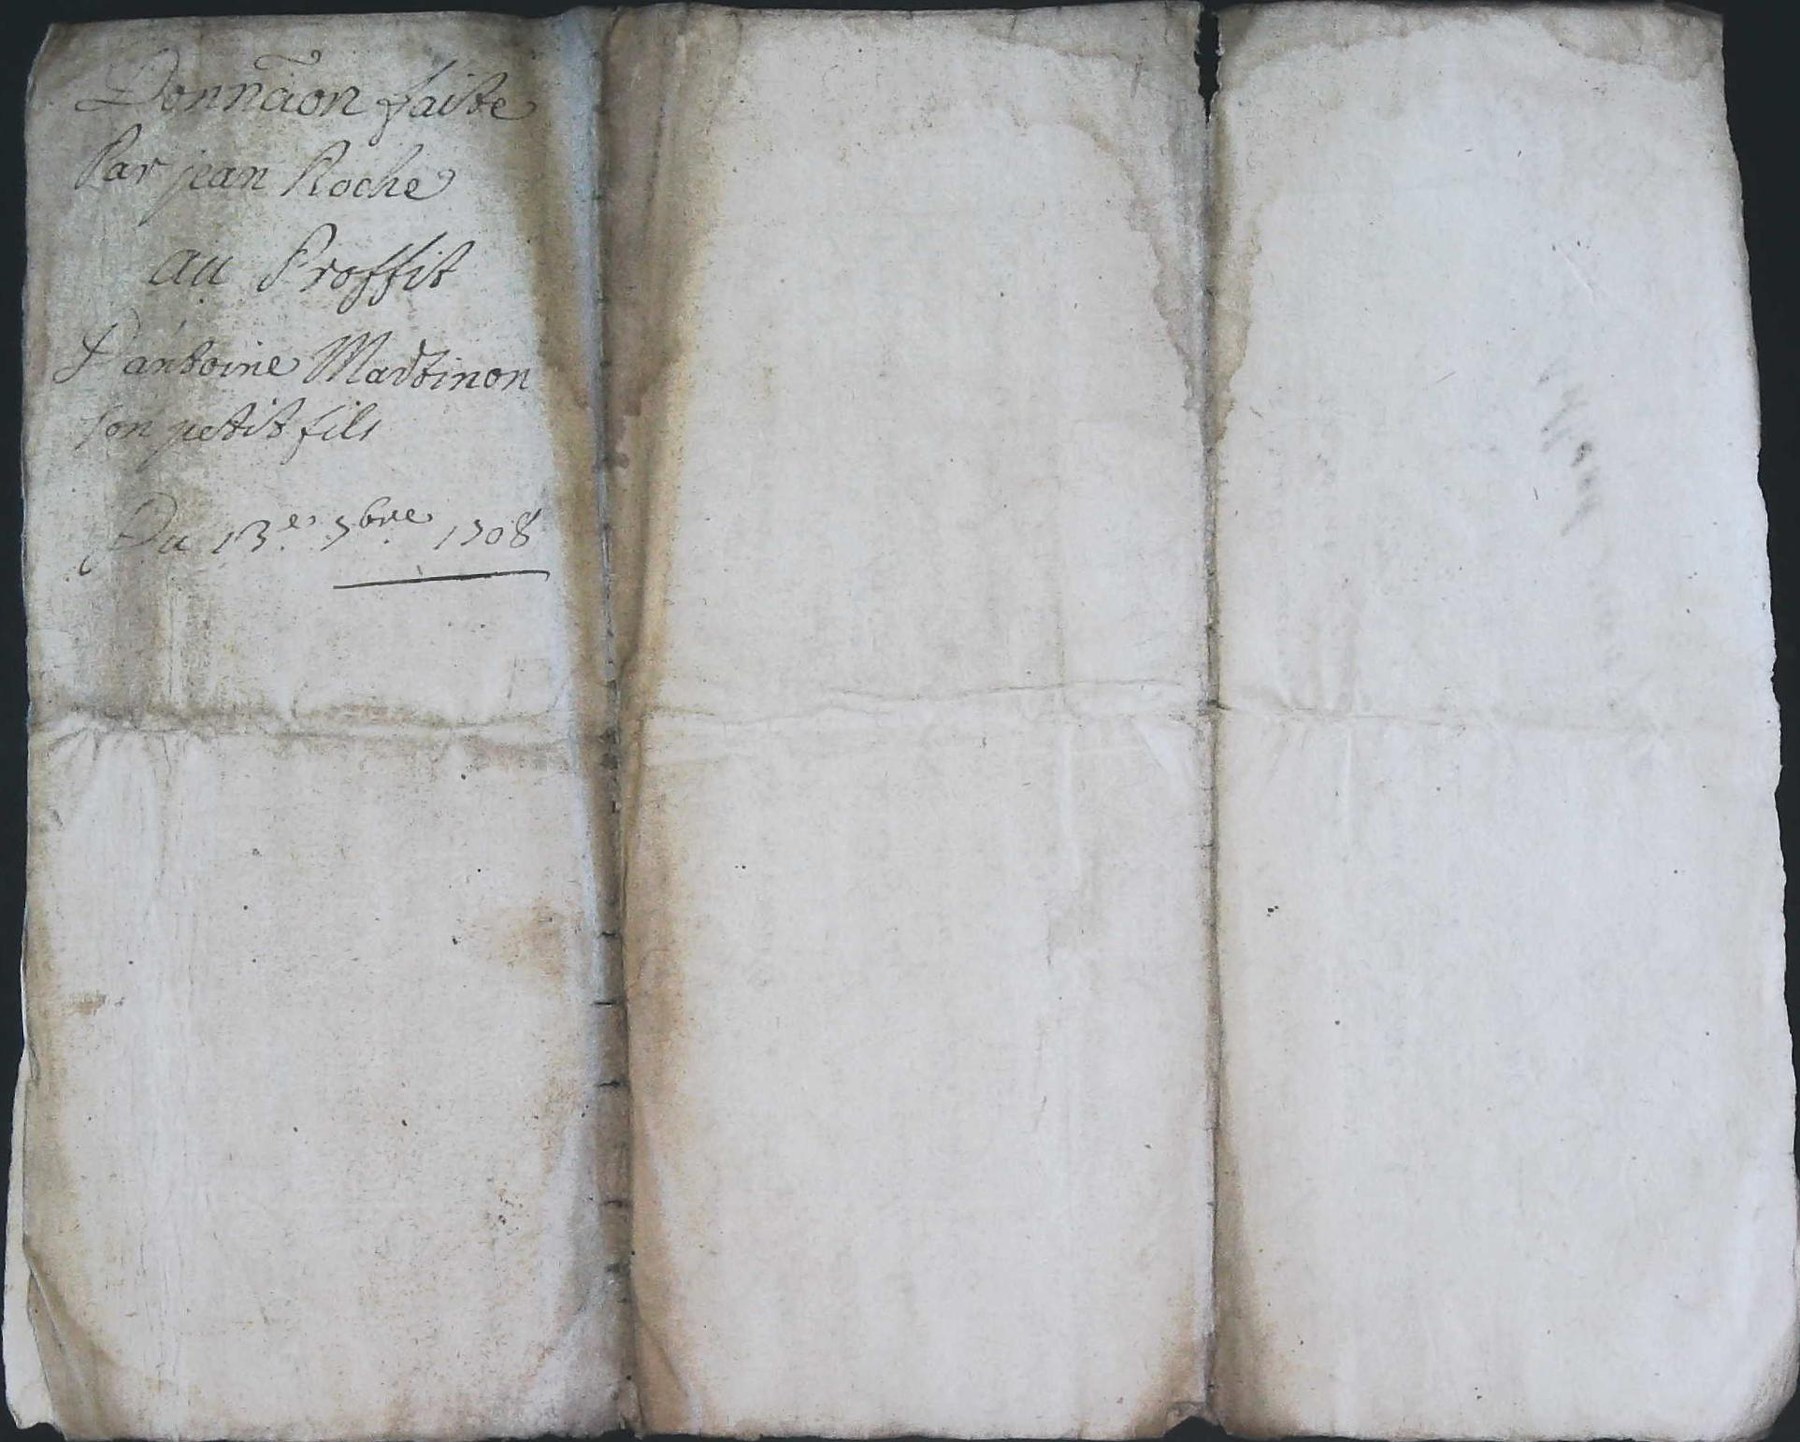 Donnãon faite
Par jean Roche
au Proffit
D'antoine Martinon
son petit fils
Du 13e 7bre 1708